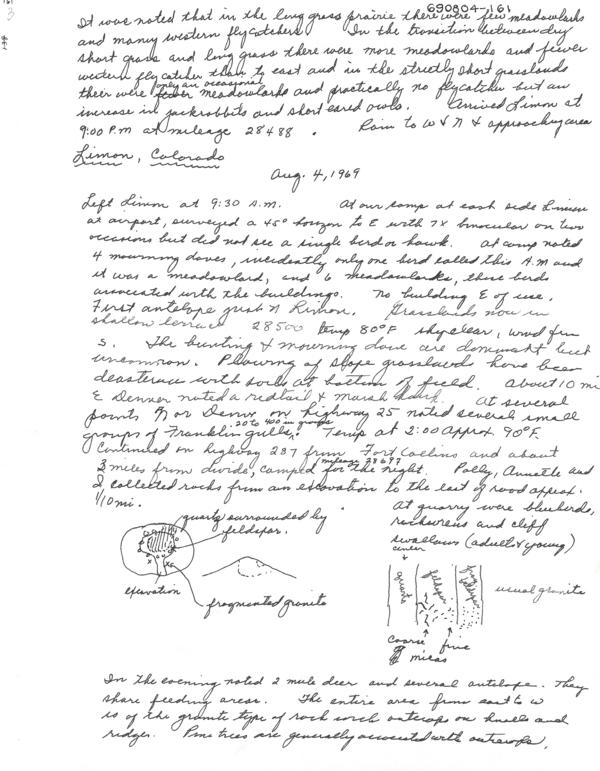 690804-161
161
3
It was noted that in the long grass prairie there were few meadowlarks
and many western flycatchers. In the transition between dry
short grass and long grass there were more meadowlarks and fewer
western flycatcher than to east and in the strictly short grasslands
only an occasional
there were fewer meadowlarks and practically no flycatcher but an
increase in jackrabbits and short eared owls. Arrived Limon at
9:00 P.m at mileage 28488. Rain to W & N & approaching area
Limon, Colorado
Aug. 4, 1969
Left Limon at 9:30 A.M. At our camp at east side Limon
at airport, surveyed a 45° horizon to E with 7X binocular on two
occasions but did not see a single bird or hawk. At camp noted
4 mourning doves, incidently only one bird called this A.M and
it was a meadowlard, and 6 meadowlarks, these birds
associated with the buildings. No building E of use.
First antelope just N Limon. Grasslands now in
shallow terraces 28500 temp 80°F sky clear, wind fm
S. The bunting & mourning dove are dominant but
uncommon. Plowing of slope grasslands have been
deasterous with soils at bottom of field. About 10 mi
E Denver noted a redtail & marsh hawk. At several
points N or Denver on highway 25 noted several small
20 to 400 in groups
groups of Franklin gulls. Temp at 2:00 Approx 90°F.
Continued on highway 287 from Fort Collins and about
mileage 28697
3 miles from divide, camped for the night. Polly, Annette and
I collected rocks from an excavation to the east of road approx.
1/10 mi.
At quarry were bluebirds,
rockwrens and cliff
swallows (adults & young)
quartz surrounded by
feldspar.
excavation
fragmented granite
center
quartz
feldspar
feldspar
usual granite
coarse fine
micas
In the evening noted 2 mule deer and several antelope. They
share feeding areas. The entire area from east to W
is of the granite type of rock with outcrops on knolls and
ridges. Pine trees are generally associated with outcrops.